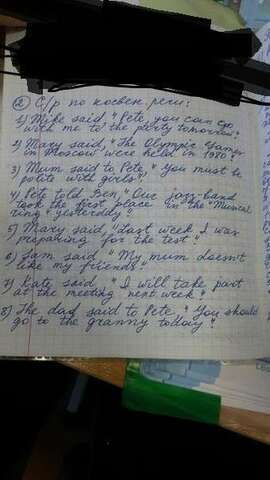 ② С/р по косвен. речи:
1) Mike said, "Pete, you can go
with me to the party tomorrow"
2) Mary said, "The Olympic Games
in Moscow were held in 1980"
3) Mum said to Pete, "You must be
polite with girls"
4) Pete told Ben, "Our jazz-band
took the first place in the "Musical
ring" yesterday"
5) Mary said, "Last week I was
preparing for the test"
6) Sam said "My mum doesn't
like my friends"
7) Kate said, "I will take part
at the meeting next week"
8) The dad said to Pete, "You should
go to the granny today"